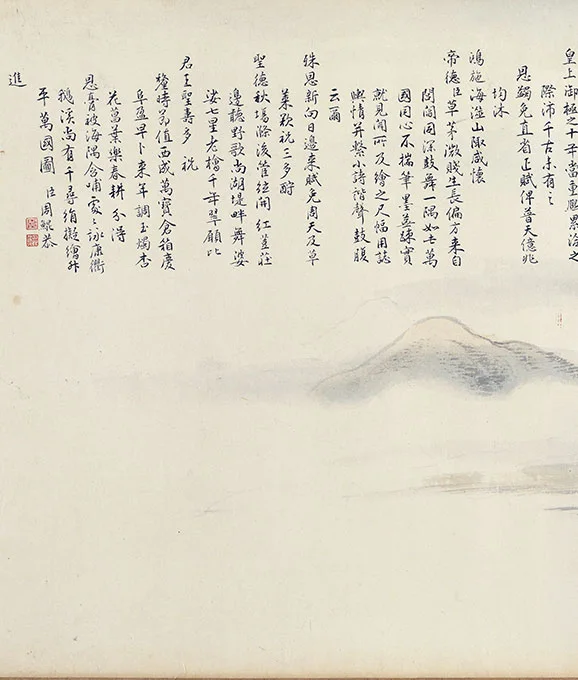 皇上御極之十年當重熙累洽之
際沛千古未有之
恩蠲免直省正賦俾普天億兆
均沐
鴻施海澨山陬咸懷
帝德臣草茅微賤生長偏方来自
閭閻周深鼓舞一隅如此萬
國同心不揣筆墨蕪疎實
就見聞所及繪之尺幅用誌
輿情并繫小詩諧聲鼓腹
云爾
殊恩新向日邊来賦免周天及草
萊歡祝三多酹
聖德秋場滌後隺筵開 紅荳莊
邊聽野歌尚湖堤畔舞婆
娑七星老檜千年翠願比
君王聖壽多 祝
釐時為值西成萬寶倉箱慶
阜盈早卜来年調玉燭杏
花菖葉樂春耕 分得
恩膏被海隅含哺處處詠康衢
鵝溪尚有千尋絹擬繪昇
平萬國圖 臣周鯤恭
進